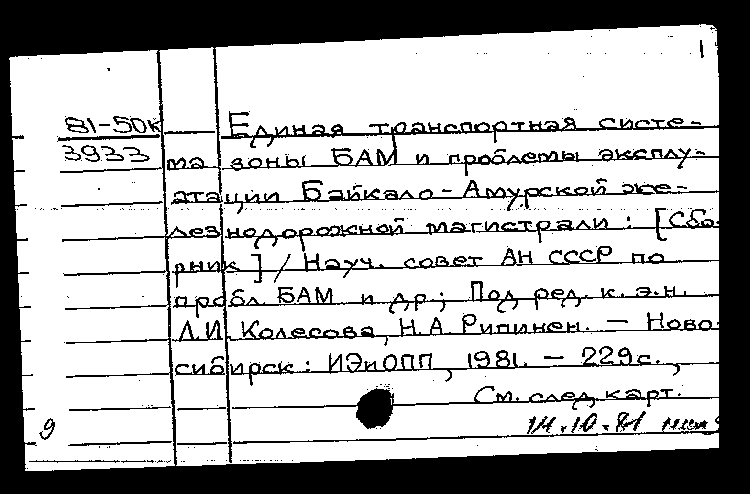 1
81-50к Единая транспортная систе-
3933 ма зоны БАМ и проблемы эксплу-
атации Байкало-Амурской же-
лезнодорожной магистрали: [Сбо-
рник] / Науч. совет АН СССР по
пробл. БАМ и др.; Под ред. к.э.н.
Л.И. Колесова, Н.А. Рипинен. — Ново-
сибирск: ИЭиОПП, 1981. — 229с.,
См. след. карт.
9 14.10.81